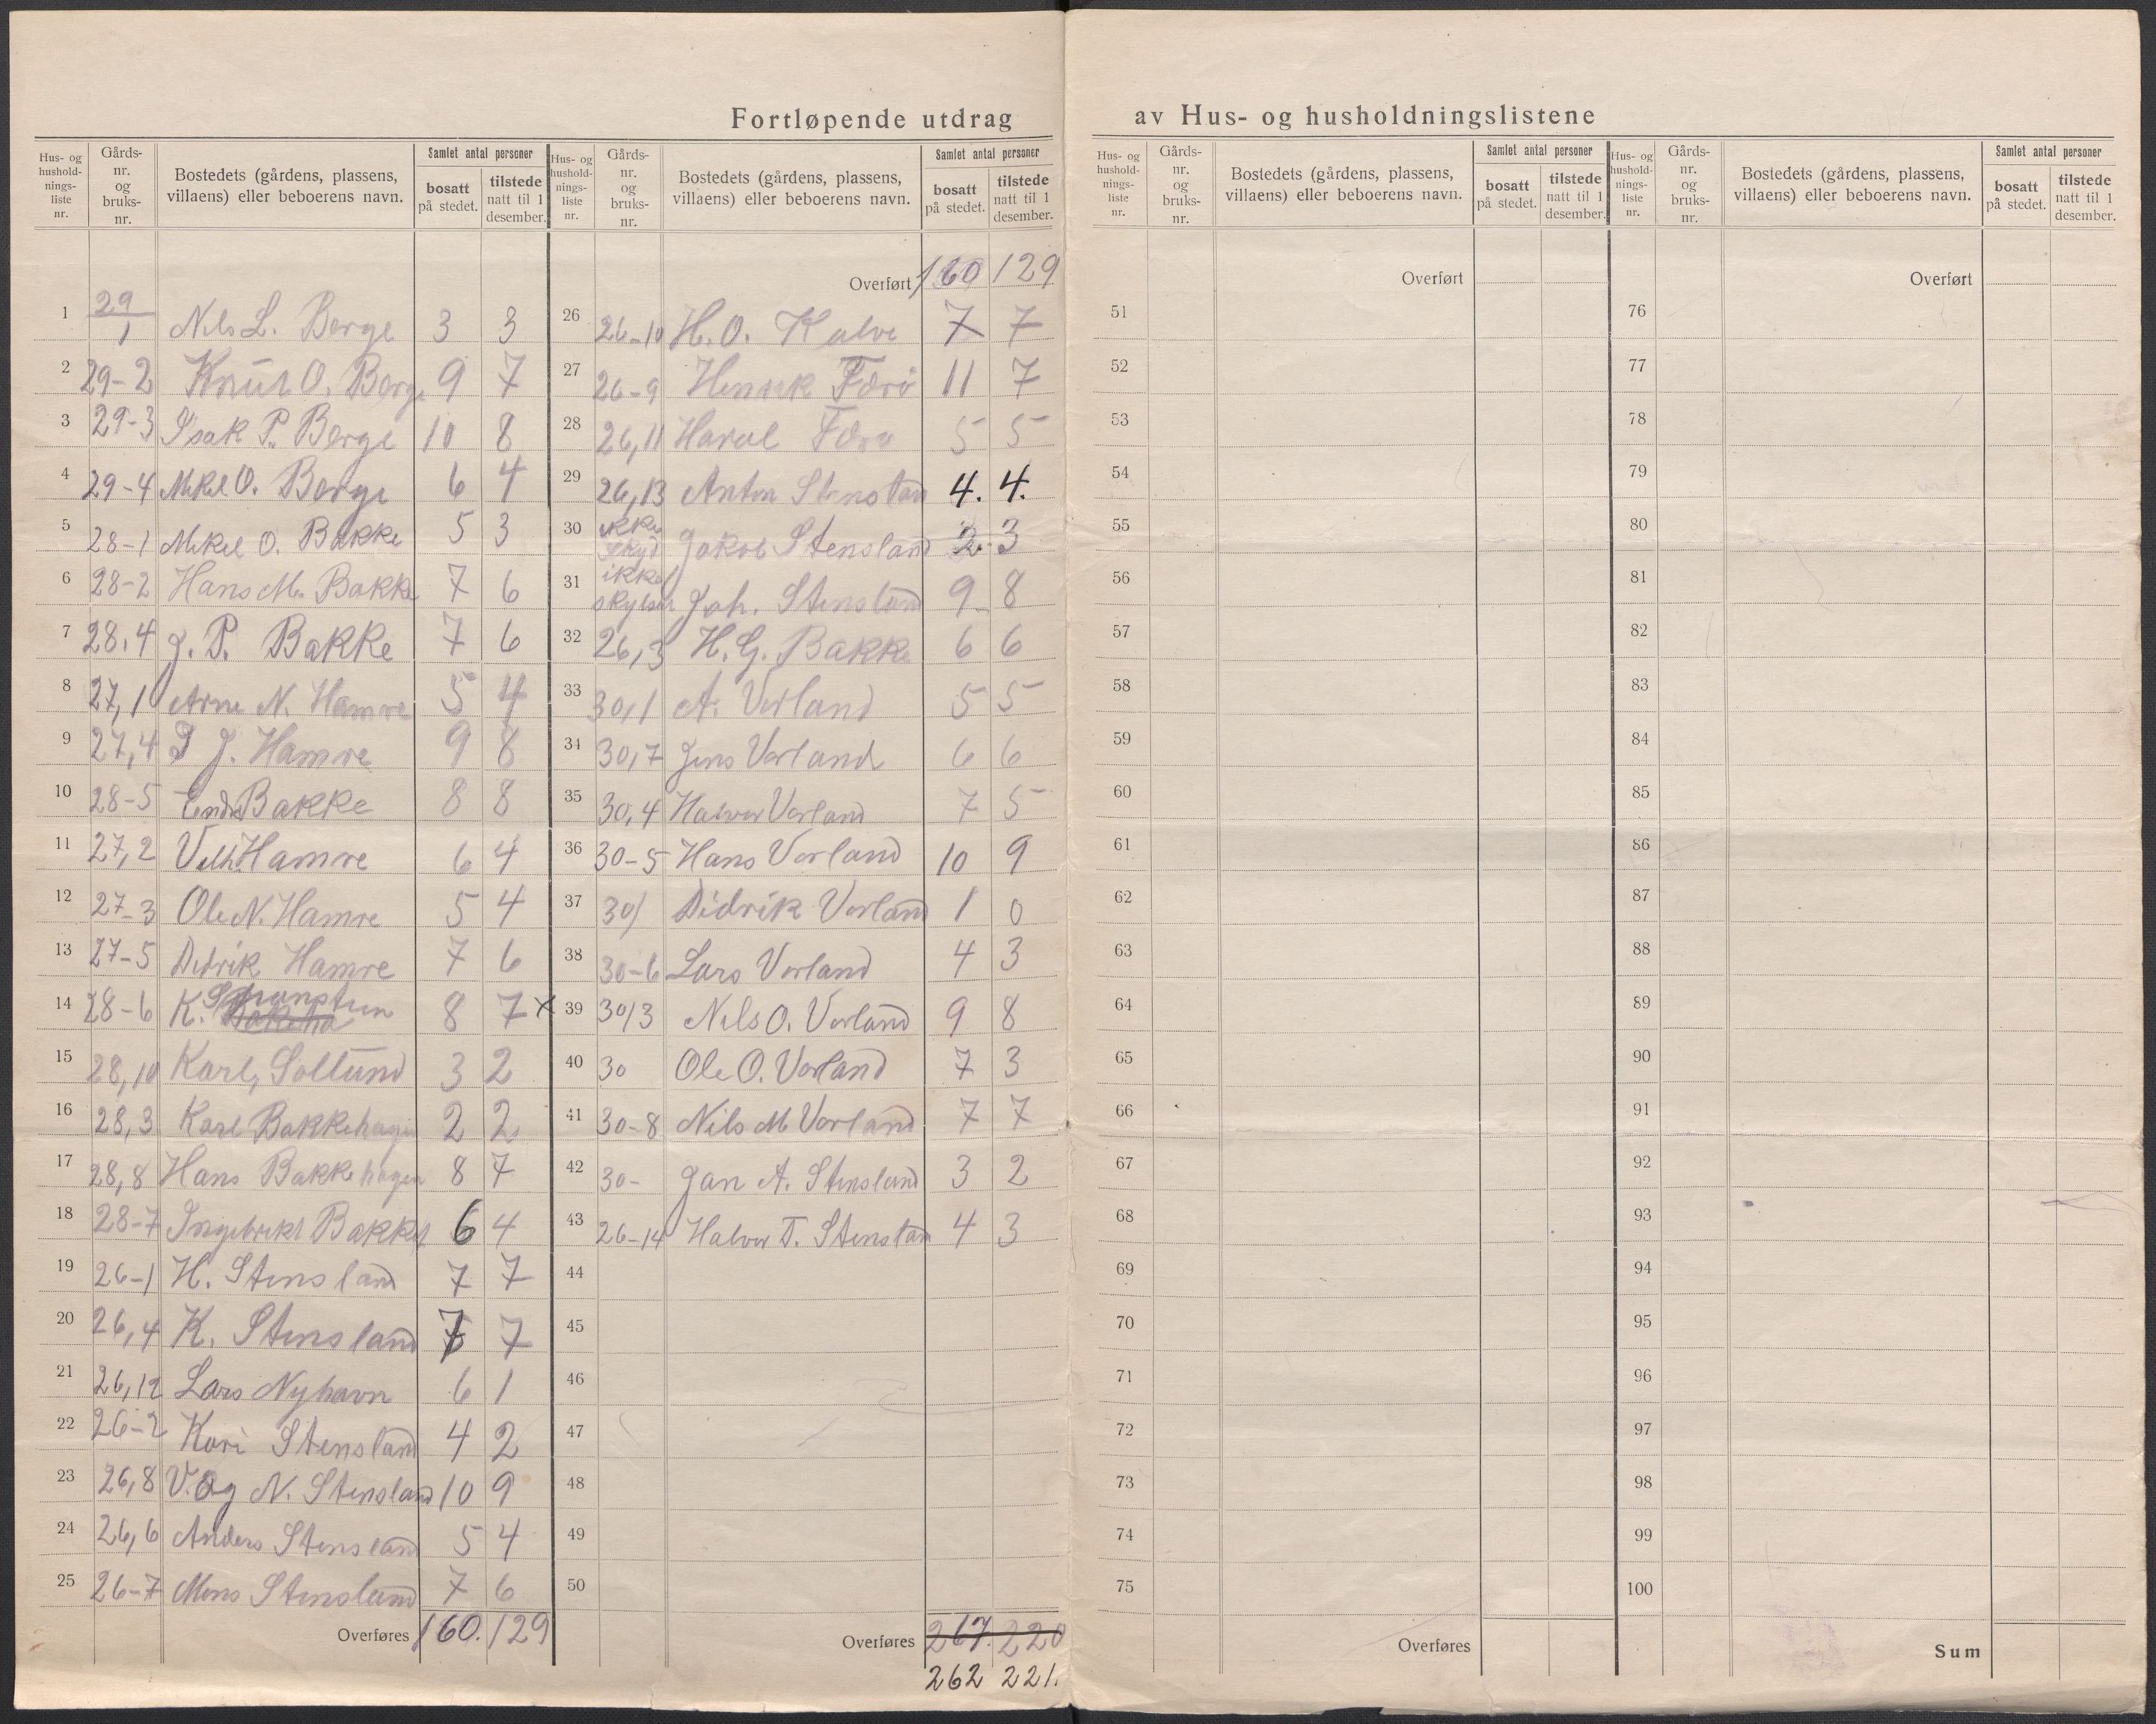 Fortløpende utdrag av Hus- og husholdningslistene
Hus- og hushold-nings-liste nr. | Gårds-nr. og bruks-nr. | Bostedets (gårdens, plassens, villaens) eller beboerens navn. | Samlet antal personer | bosatt på stedet. | tilstede natt til 1 desember.
1 29/1 Nils L. Berge 3 3
2 29-2 Knut O. Berge 9 7
3 29-3 Isak P. Berge 10 8
4 29-4 Mikel O. Berge 6 4
5 28-1 Mikel O. Bakke 5 3
6 28-2 Hans M. Bakke 7 6
7 28.4 J. P. Bakke 7 6
8 27,1 Arne N. Hamre 5 4
9 27,4 J. Hamre 9 8
10 28-5 Endre Bakke 8 8
11 27,2 Vilh. Hamre 6 4
12 27-3 Ole N. Hamre 5 4
13 27-5 Didrik Hamre 7 6
14 28-6 K. 8 7 x
15 28,10 Karl Sollund 3 2
16 28,3 Karl Bakkehagen 2 2
17 28,8 Hans Bakkehagen 8 7
18 28-7 Ingebrikt Bakke 6 4
19 26-1 H. Stensland 7 7
20 26,4 K. Stensland 7 7
21 26,12 Lars Nyhavn 6 1
22 26-2 Kari Stensland 4 2
23 26,8 V. og N. Stensland 10 9
24 26,6 Anders Stensland 5 4
25 26-7 Mons Stensland 7 6
Overføres 160. 129
Hus- og hushold-nings-liste nr. | Gårds-nr. og bruks-nr. | Bostedets (gårdens, plassens, villaens) eller beboerens navn. | Samlet antal personer | bosatt på stedet. | tilstede natt til 1 desember.
Overført 160 129
26 26-10 H. O. Kalve 7 7
27 26-9 Henrik Færø 11 7
28 26,11 Haral Færø 5 5
29 26,13 Anton Stensland 4. 4.
30 ikke skyld Jakob Stensland 2. 3
31 ikke Joh. Stensland 9 8
32 26,3 H. G. Bakke 6 6
33 30,1 A. Vorland 5 5
34 30,7 Jens Vorland 6 6
35 30,4 Halvor Vorland 7 5
36 30-5 Hans Vorland 10 9
37 30/ Didrik Vorland 1 0
38 30-6 Lars Vorland 4 3
39 30/3 Nils O. Vorland 9 8
40 30 Ole O. Vorland 7 3
41 30-8 Nils M Vorland 7 7
42 30- Jan A. Stensland 3 2
43 26-14 Halvor T. Stensland 4 3
44
45
46
47
48
49
50
Overføres 267. 220
262 221.
Hus- og hushold-nings-liste nr. | Gårds-nr. og bruks-nr. | Bostedets (gårdens, plassens, villaens) eller beboerens navn. | Samlet antal personer | bosatt på stedet. | tilstede natt til 1 desember.
Overført
51
52
53
54
55
56
57
58
59
60
61
62
63
64
65
66
67
68
69
70
71
72
73
74
75
Overføres
Hus- og hushold-nings-liste nr. | Gårds-nr. og bruks-nr. | Bostedets (gårdens, plassens, villaens) eller beboerens navn. | Samlet antal personer | bosatt på stedet. | tilstede natt til 1 desember.
Overført
76
77
78
79
80
81
82
83
84
85
86
87
88
89
90
91
92
93
94
95
96
97
98
99
100
Sum